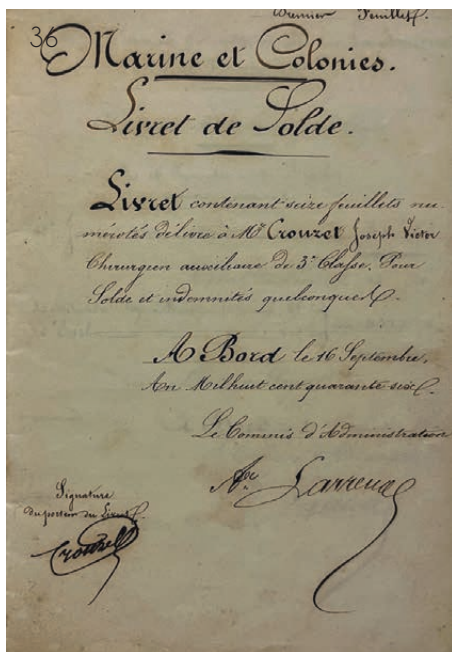 Premier Feuillet.
36
Marine et Colonies.
Livret de Solde.
Livret contenant seize feuillets nu-
mérotés délivré à Mr. Crouzet Joseph Victor
Chirurgien auxiliaire de 3e Classe. Pour
Solde et indemnités quelconques.
A Bord le 16 Septembre,
An Milhuit cent quarante six.
Le Commis d'Administration
Signature
du porteur du Livret.
Crouzet